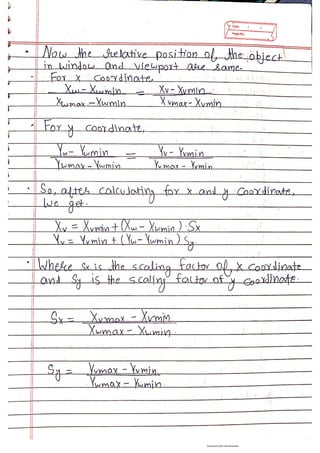 • Now the relative position of the object
in window and viewport are same.
• For x coordinate,
Xw - Xwmin = Xv - Xvmin
Xwmax - Xwmin   Xvmax - Xvmin
• For y coordinate,
Yw - Ywmin = Yv - Yvmin
Ywmax - Ywmin   Yvmax - Yvmin
• So, after calculating for x and y coordinate,
We get.
Xv = Xvmin + (Xw - Xwmin) Sx
Yv = Yvmin + (Yw - Ywmin) Sy
• Where Sx is the scaling factor of x coordinate
and Sy is the scaling factor of y coordinate.
Sx = Xvmax - Xvmin
Xwmax - Xwmin
Sy = Yvmax - Yvmin
Ywmax - Ywmin